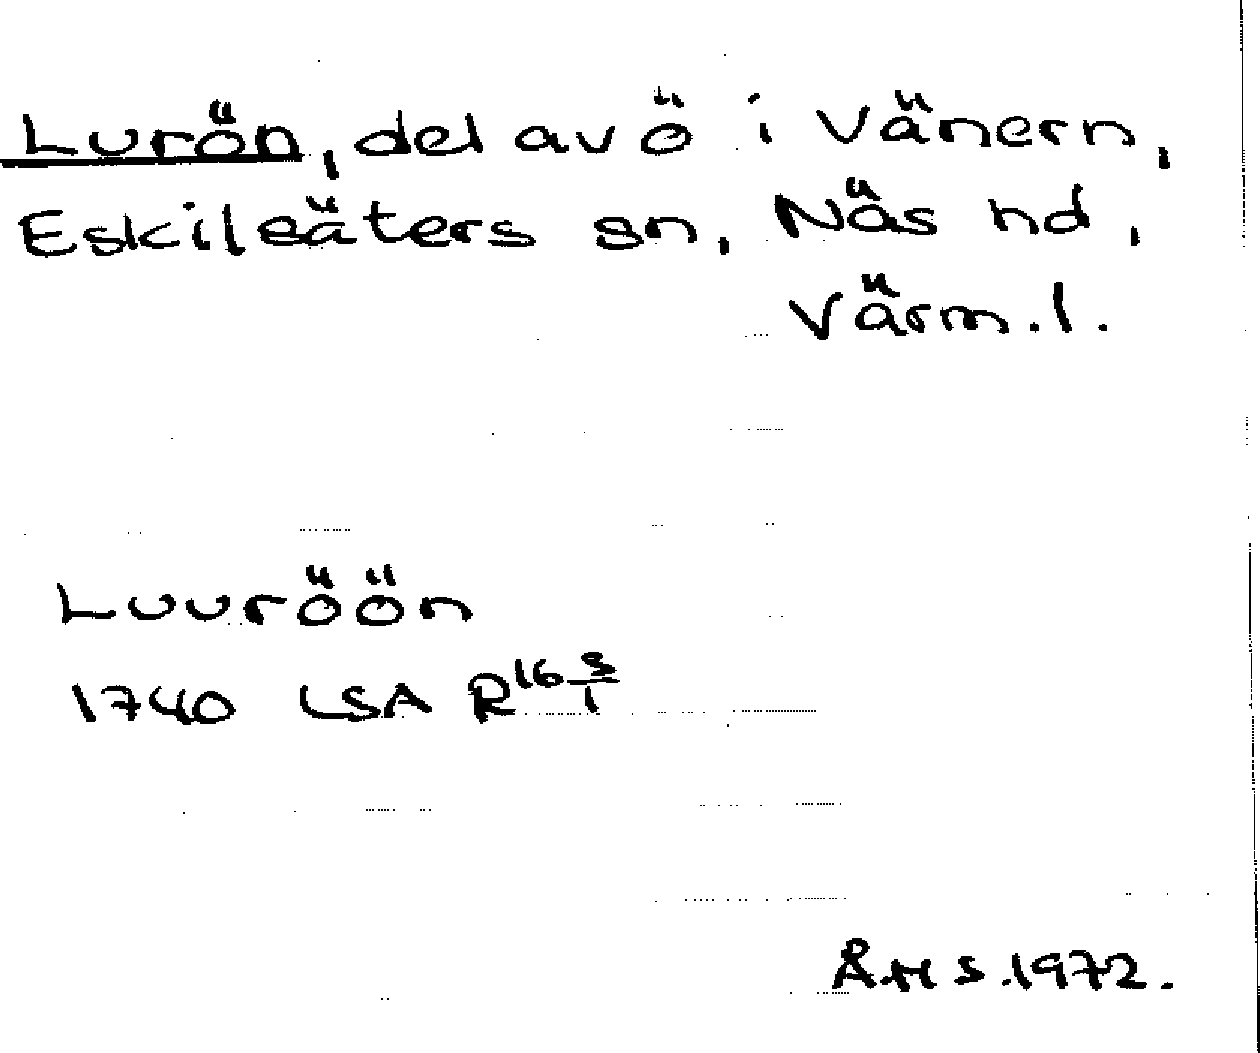 Lurön, del av ö i Vänern,
Eskilsäters sn, Näs hd,
Värm.l.
Luuröön
1740 LSA R16 3/1
Å.H S.1972.